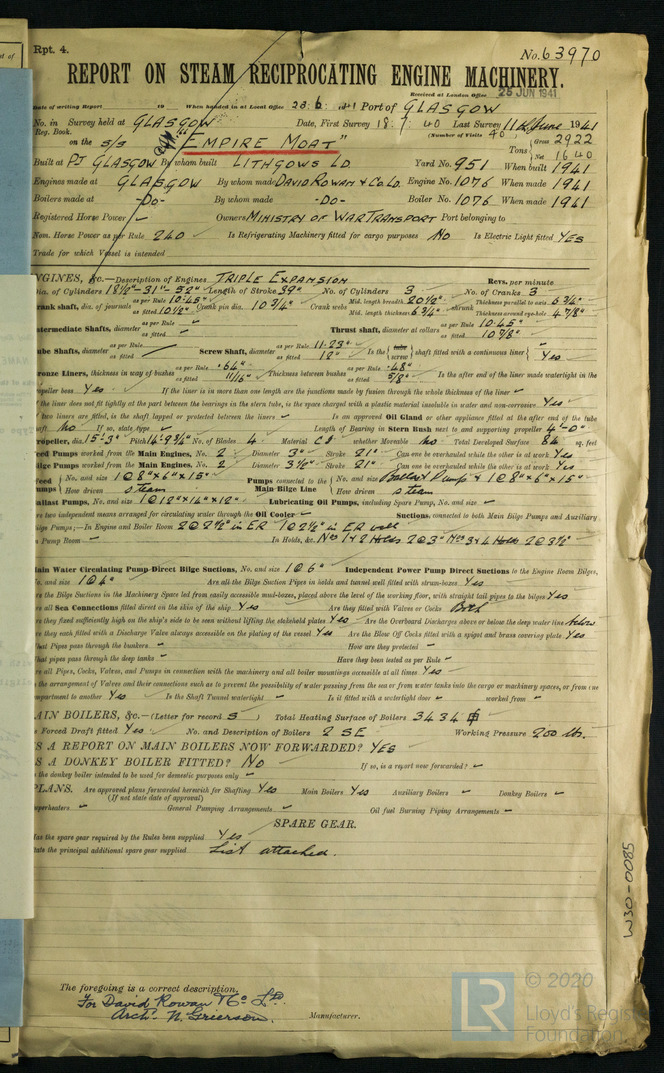 Rpt. 4.
No. 63970
REPORT ON STEAM RECIPROCATING ENGINE MACHINERY.
Received at London Office 25 JUN 1941
Date of writing Report 19 When handed in at Local Office 23.6.1941 Port of GLASGOW
No. in Survey held at GLASGOW Date, First Survey 18.7.40 Last Survey 11th June 1941
Reg. Book. (Number of Visits 40)
on the S/S "EMPIRE MOAT" Tons Gross 2922 Net 1640
Built at Pt GLASGOW By whom built LITHGOWS LD Yard No. 951 When built 1941
Engines made at GLASGOW By whom made DAVID ROWAN & CO LD. Engine No. 1076 When made 1941
Boilers made at -DO- By whom made -DO- Boiler No. 1076 When made 1941
Registered Horse Power Owners MINISTRY OF WAR TRANSPORT Port belonging to
Nom. Horse Power as per Rule 240 Is Refrigerating Machinery fitted for cargo purposes NO Is Electric Light fitted YES
Trade for which Vessel is intended
NGINES, &c.—Description of Engines TRIPLE EXPANSION Revs. per minute
Dia. of Cylinders 18½"-31"-52" Length of Stroke 39" No. of Cylinders 3 No. of Cranks 3
rank shaft, dia. of journals as per Rule 10.45" as fitted 10½" Crank pin dia. 10¾" Crank webs Mid. length breadth 20½" Mid. length thickness 6¾" shrunk Thickness parallel to axis 6¾" Thickness around eye-hole 4⅞"
ntermediate Shafts, diameter as per Rule as fitted Thrust shaft, diameter at collars as per Rule 10.45" as fitted 10⅞"
ube Shafts, diameter as per Rule as fitted Screw Shaft, diameter as per Rule 11.23" as fitted 12" Is the tube screw shaft fitted with a continuous liner Yes
ronze Liners, thickness in way of bushes as per Rule .64" as fitted 11/16" Thickness between bushes as per Rule .48" as fitted 5/8" Is the after end of the liner made watertight in the
peller boss Yes If the liner is in more than one length are the junctions made by fusion through the whole thickness of the liner
the liner does not fit tightly at the part between the bearings in the stern tube, is the space charged with a plastic material insoluble in water and non-corrosive Yes
two liners are fitted, is the shaft lapped or protected between the liners Is an approved Oil Gland or other appliance fitted at the after end of the tube
haft No If so, state type Length of Bearing in Stern Bush next to and supporting propeller 4'-0"
ropeller, dia. 15'-3" Pitch 14'-9¾" No. of Blades 4 Material C.I. whether Moveable No Total Developed Surface 84 sq. feet
eed Pumps worked from the Main Engines, No. 2 Diameter 3" Stroke 21" Can one be overhauled while the other is at work Yes
ilge Pumps worked from the Main Engines, No. 2 Diameter 3½" Stroke 21" Can one be overhauled while the other is at work Yes
eed umps No. and size 1 @ 8"x6"x15" How driven steam Pumps connected to the Main Bilge Line No. and size Ballast Pump & 1 @ 8"x6"x15" How driven steam
allast Pumps, No. and size 1 @ 12"x14"x12" Lubricating Oil Pumps, including Spare Pump, No. and size
re two independent means arranged for circulating water through the Oil Cooler Suctions, connected to both Main Bilge Pumps and Auxiliary
ilge Pumps;—In Engine and Boiler Room 2 @ 2½" in ER 1 @ 2½" in ER well
n Pump Room In Holds, &c. Nos 1 & 2 Holds 2 @ 3" Nos 3 & 4 Holds 2 @ 3½"
ain Water Circulating Pump Direct Bilge Suctions, No. and size 1 @ 6" Independent Power Pump Direct Suctions to the Engine Room Bilges,
o. and size 1 @ 4" Are all the Bilge Suction Pipes in holds and tunnel well fitted with strum-boxes Yes
re the Bilge Suctions in the Machinery Space led from easily accessible mud-boxes, placed above the level of the working floor, with straight tail pipes to the bilges Yes
re all Sea Connections fitted direct on the skin of the ship Yes Are they fitted with Valves or Cocks Both
re they fixed sufficiently high on the ship's side to be seen without lifting the stokehold plates Yes Are the Overboard Discharges above or below the deep water line Above
re they each fitted with a Discharge Valve always accessible on the plating of the vessel Yes Are the Blow Off Cocks fitted with a spigot and brass covering plate Yes
hat Pipes pass through the bunkers How are they protected
hat pipes pass through the deep tanks Have they been tested as per Rule
re all Pipes, Cocks, Valves, and Pumps in connection with the machinery and all boiler mountings accessible at all times Yes
s the arrangement of Valves and their connections such as to prevent the possibility of water passing from the sea or from water tanks into the cargo or machinery spaces, or from one
mpartment to another Yes Is the Shaft Tunnel watertight Is it fitted with a watertight door worked from
AIN BOILERS, &c.—(Letter for record S) Total Heating Surface of Boilers 3434
s Forced Draft fitted Yes No. and Description of Boilers 2 SE Working Pressure 200 lb.
S A REPORT ON MAIN BOILERS NOW FORWARDED? YES
S A DONKEY BOILER FITTED? NO If so, is a report now forwarded?
s the donkey boiler intended to be used for domestic purposes only
PLANS. Are approved plans forwarded herewith for Shafting Yes Main Boilers Yes Auxiliary Boilers Donkey Boilers
(If not state date of approval)
uperheaters General Pumping Arrangements Oil fuel Burning Piping Arrangements
SPARE GEAR.
Has the spare gear required by the Rules been supplied Yes
tate the principal additional spare gear supplied List attached.
W30-0085
The foregoing is a correct description,
For David Rowan & Co. Ltd.
Archd. N. Grierson. Manufacturer.
LR © 2020
Lloyd's Register
Foundation